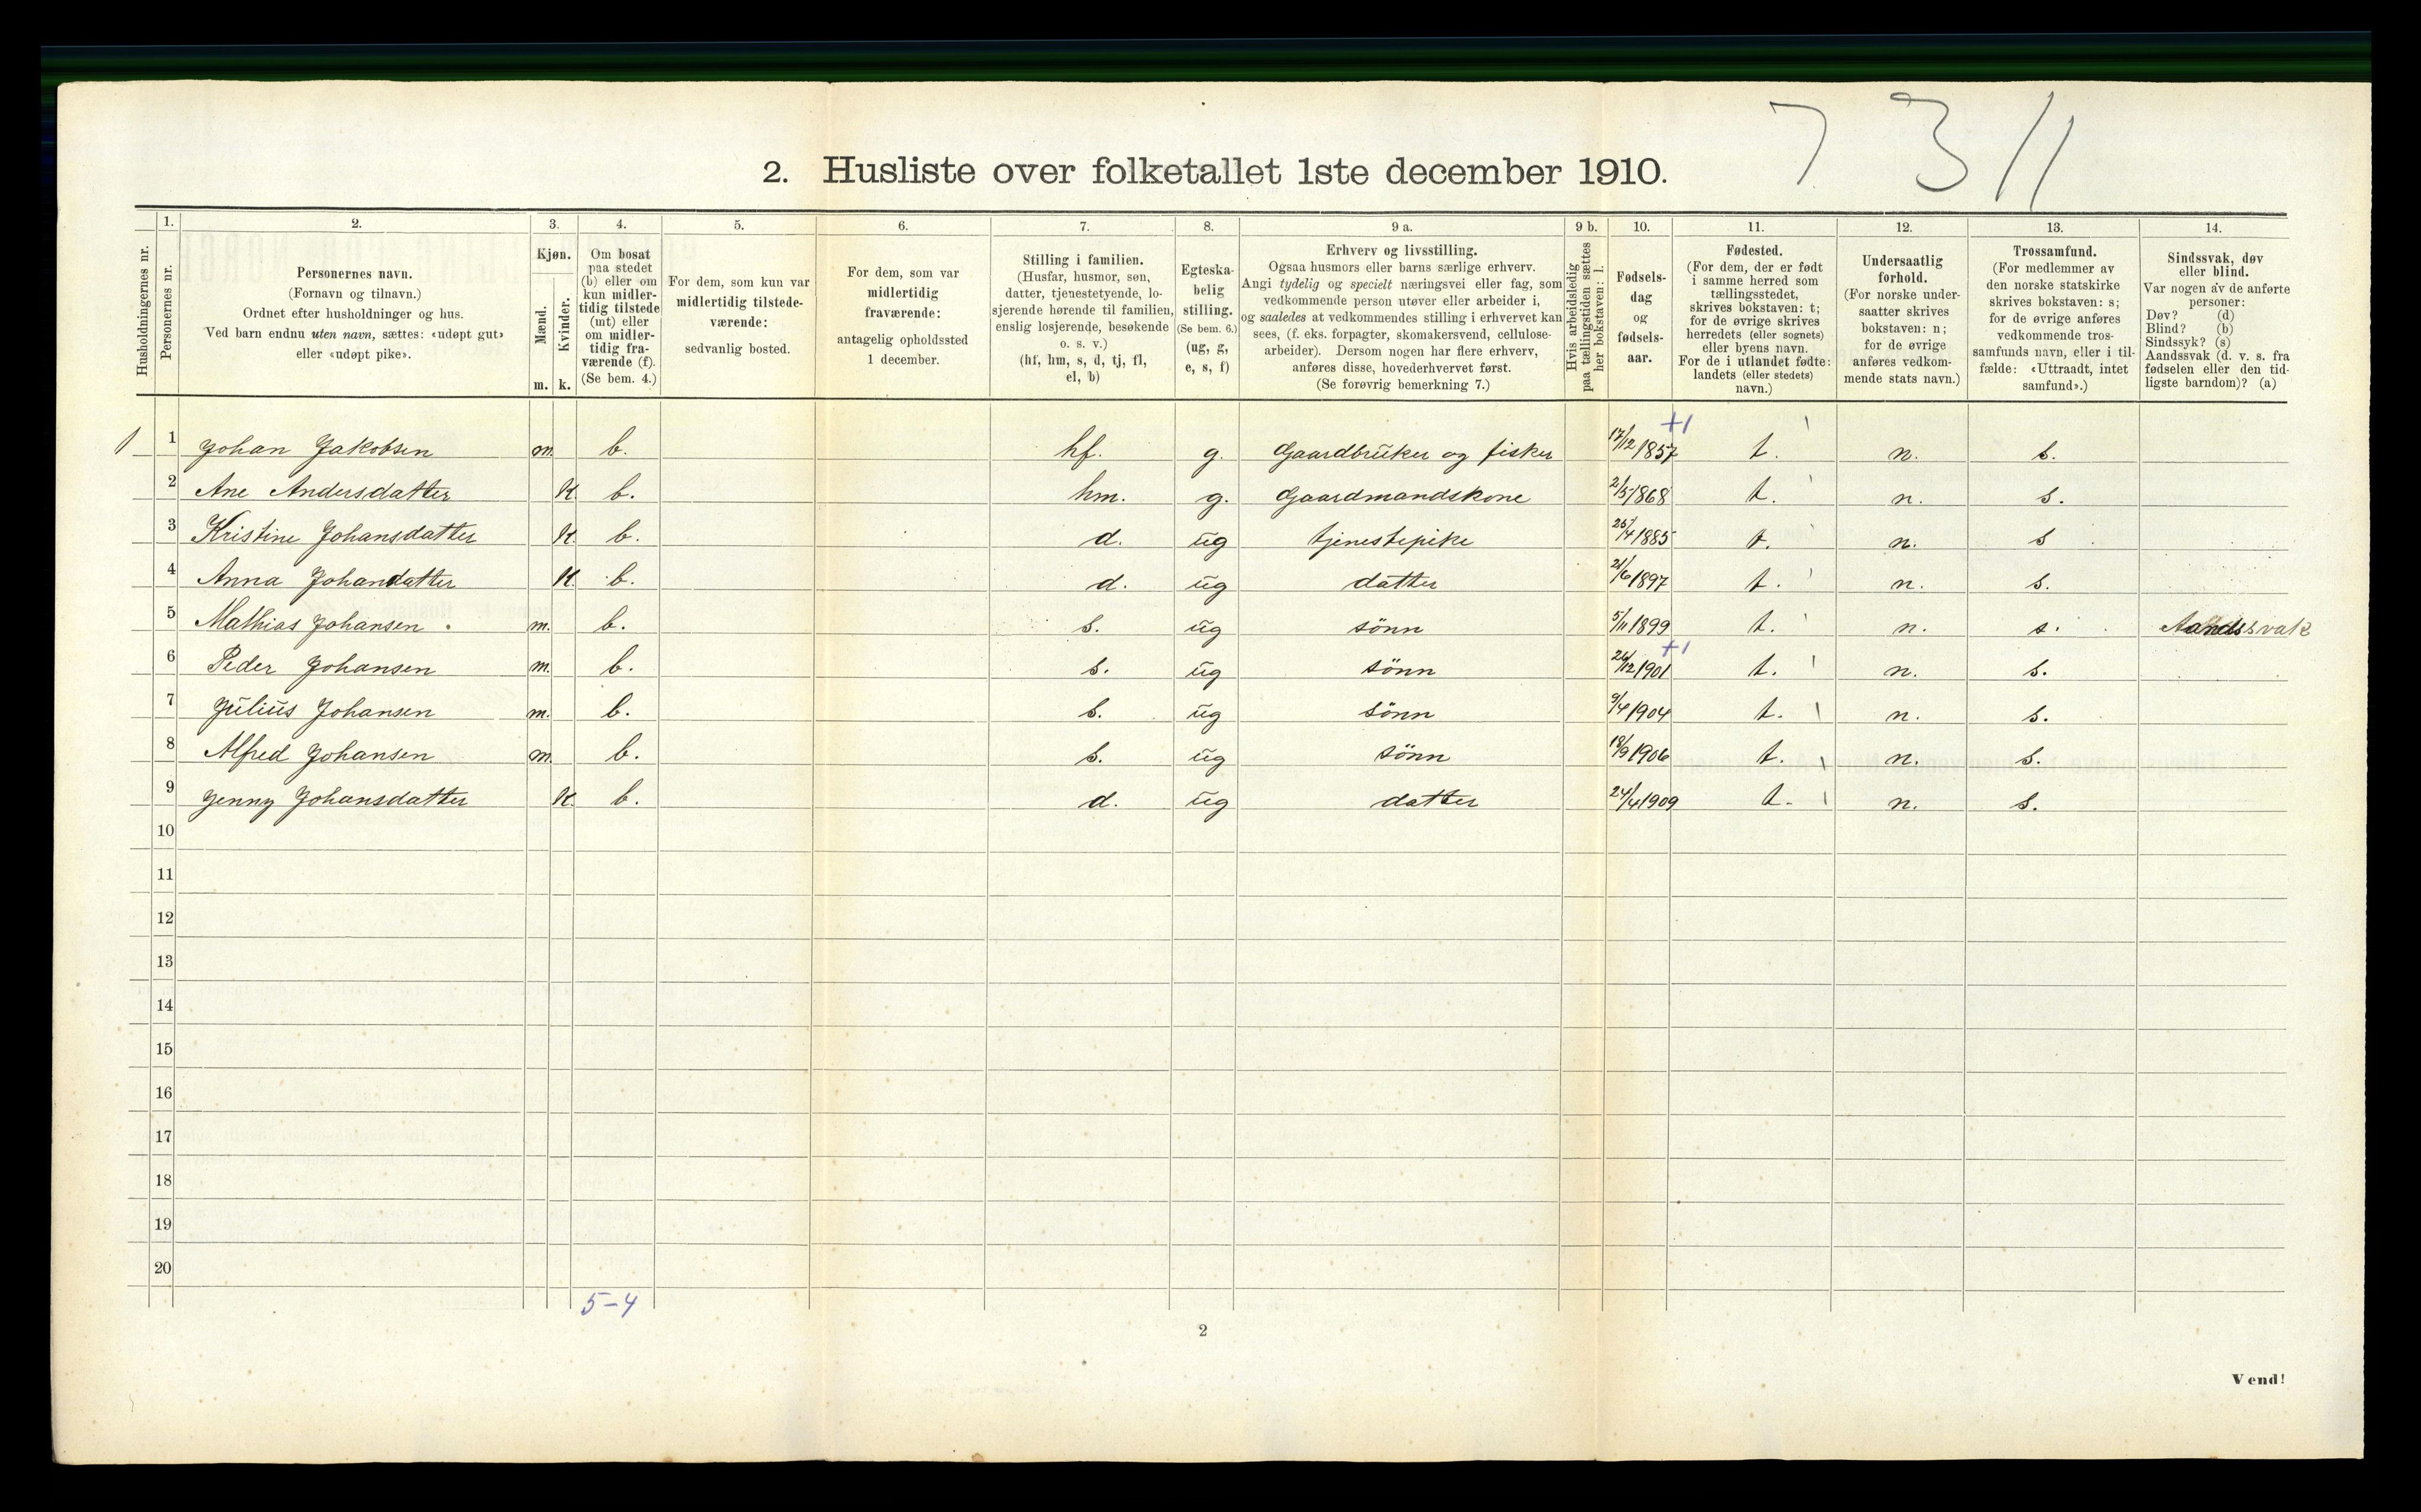 7 3 11
2. Husliste over folketallet 1ste december 1910.
Husholdningernes nr.
1.
Personernes nr.
2.
Personernes navn.
(Fornavn og tilnavn.)
Ordnet efter husholdninger og hus.
Ved barn endnu uten navn, sættes: «udøpt gut»
eller «udøpt pike».
3.
Kjøn.
Mænd.
m.
Kvinder.
k.
4.
Om bosat
paa stedet
(b) eller om
kun midler-
tidig tilstede
(mt) eller
om midler-
tidig fra-
værende (f).
(Se bem. 4.)
5.
For dem, som kun var
midlertidig tilstede-
værende:
sedvanlig bosted.
6.
For dem, som var
midlertidig
fraværende:
antagelig opholdssted
1 december.
7.
Stilling i familien.
(Husfar, husmor, søn,
datter, tjenestetyende, lo-
sjerende hørende til familien,
enslig losjerende, besøkende
o. s. v.)
(hf, hm, s, d, tj, fl,
el, b)
8.
Egteska-
belig
stilling.
(Se bem. 6.)
(ug, g,
e, s, f)
9 a.
Erhverv og livsstilling.
Ogsaa husmors eller barns særlige erhverv.
Angi tydelig og specielt næringsvei eller fag, som
vedkommende person utøver eller arbeider i,
og saaledes at vedkommendes stilling i erhvervet kan
sees, (f. eks. forpagter, skomakersvend, cellulose-
arbeider). Dersom nogen har flere erhverv,
anføres disse, hovederhvervet først.
(Se forøvrig bemerkning 7.)
9 b.
Hvis arbeidsledig
paa tællingstiden sættes
her bokstaven: l.
10.
Fødsels-
dag
og
fødsels-
aar.
11.
Fødested.
(For dem, der er født
i samme herred som
tællingsstedet,
skrives bokstaven: t;
for de øvrige skrives
herredets (eller sognets)
eller byens navn.
For de i utlandet fødte:
landets (eller stedets)
navn.)
12.
Undersaatlig
forhold.
(For norske under-
saatter skrives
bokstaven: n;
for de øvrige
anføres vedkom-
mende stats navn.)
13.
Trossamfund.
(For medlemmer av
den norske statskirke
skrives bokstaven: s;
for de øvrige anføres
vedkommende tros-
samfunds navn, eller i til-
fælde: «Uttraadt, intet
samfund».)
14.
Sindssvak, døv
eller blind.
Var nogen av de anførte
personer:
Døv? (d)
Blind? (b)
Sindssyk? (s)
Aandssvak (d. v. s. fra
fødselen eller den tid-
ligste barndom)? (a)
+1
1 1 Johan Jakobsen m. b. hf. g. Gaardbruker og fisker 17/12 1857 t. n. s.
2 Ane Andersdatter k. b. hm. g. Gaardmandskone 2/5 1868 t. n. s.
3 Kristine Johansdatter k. b. d. ug tjenestepike 25/4 1885 t. n. s
4 Anna Johandatter k. b. d. ug datter 21/6 1897 t. n. s.
5 Mathias Johansen. m. b. s. ug sönn 5/11 1899 t. n. s. Aandssvak
+1
6 Peder Johansen m. b. s. ug sönn 26/12 1901 t. n. s.
7 Julius Johansen m. b. s. ug sönn 9/4 1904 t. n. s.
8 Alfred Johansen m. b. s. ug sönn 18/9 1906 t. n. s.
9 Jenny Johansdatter k. b. d. ug datter 24/4 1909 t. n. s.
10
11
12
13
14
15
16
17
18
19
20
5-4
2
Vend!